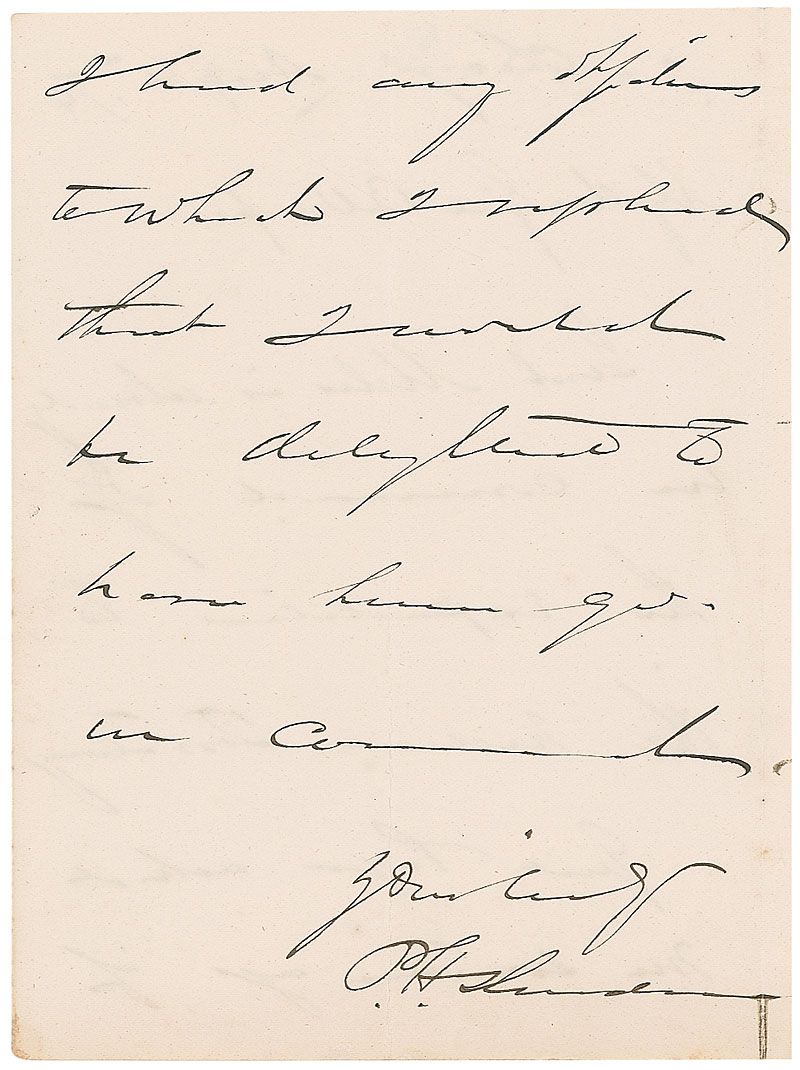 I had any objections
to which I replied
that I would
be delighted to
have him go
in command
Yours truly
P. H. Sheridan